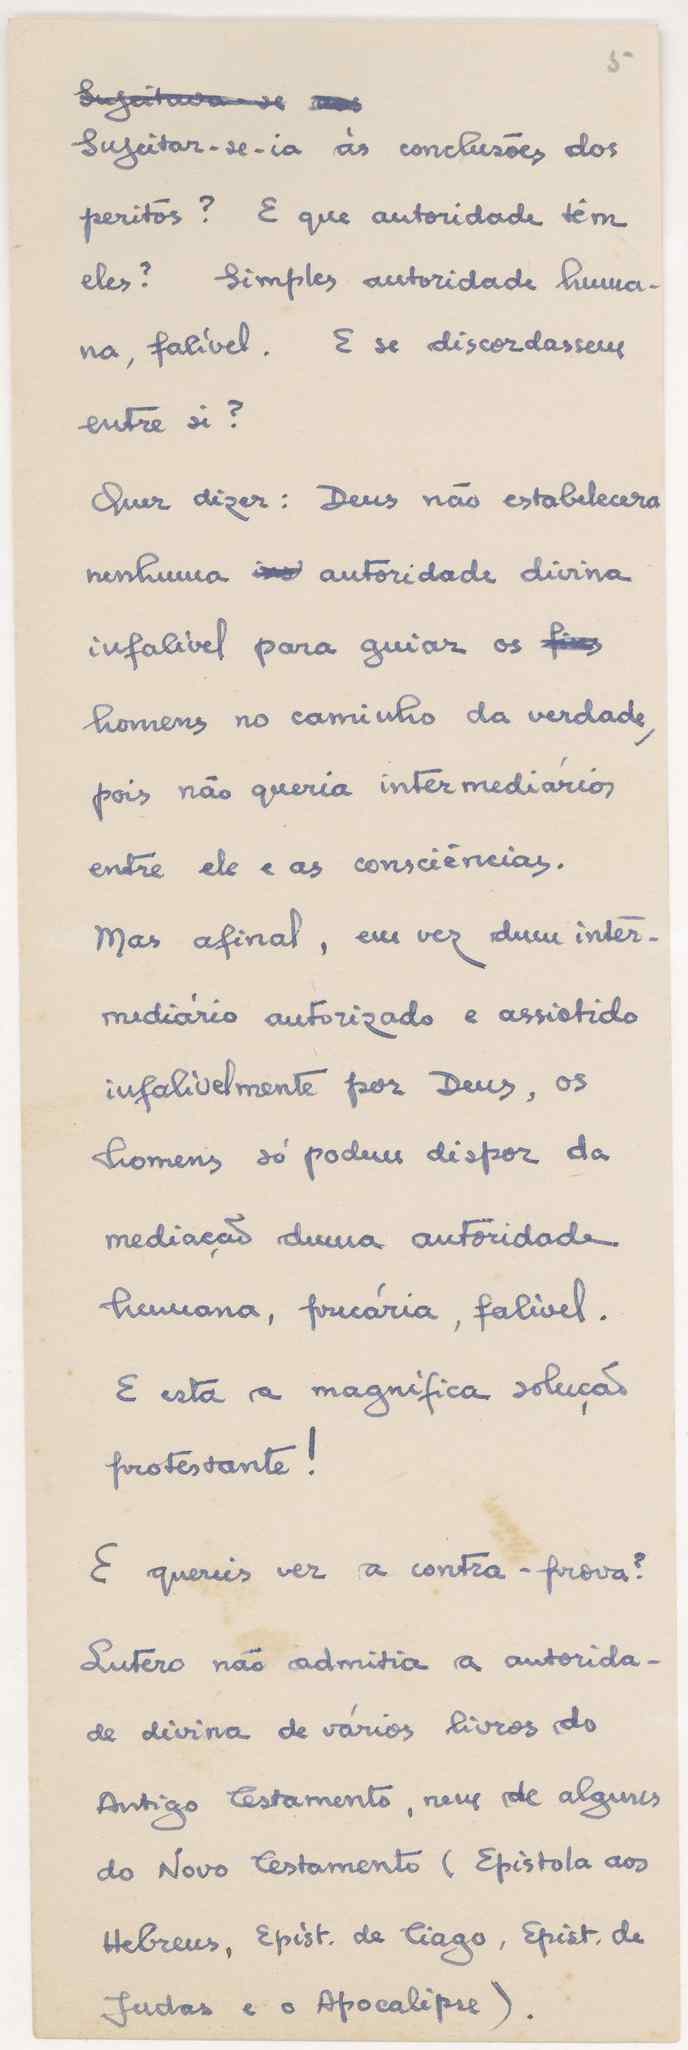 5
Sujeitava-se aos
Sujeitar-se-ia às conclusões dos
peritos? E que autoridade têm
eles? Simples autoridade huma-
na, falível. E se discordassem
entre si?
Quer dizer: Deus não estabelecera
nenhuma autoridade divina
infalível para guiar os
homens no caminho da verdade,
pois não queria intermediários
entre ele e as consciências.
Mas afinal, em vez dum inter-
mediário autorizado e assistido
infalivelmente por Deus, os
homens só podem dispor da
mediação duma autoridade
humana, precária, falível.
E esta a magnífica solução
protestante!
E quereis ver a contra-prova?
Lutero não admitia a autorida-
de divina de vários livros do
Antigo Testamento, nem de alguns
do Novo Testamento (Epistola aos
Hebreus, Epist. de Tiago, Epist. de
Judas e o Apocalipse).